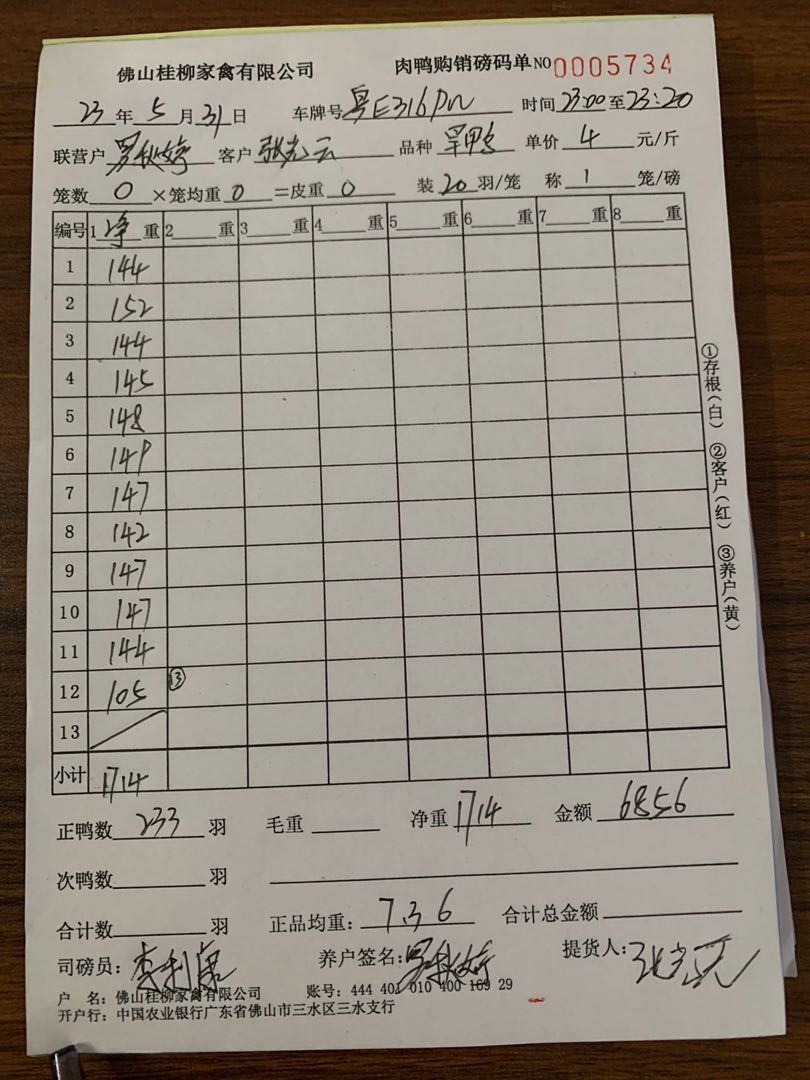 佛山桂柳家禽有限公司 肉鸭购销磅码单NO 0005734
23年5月31日 车牌号 粤E316 时间23:00至23:20
联营户 罗秋婷 客户 张光云 品种 单价 4 元/斤
笼数 0 ×笼均重 0 =皮重 0 装 20 羽/笼 称 1 笼/磅
编号 1 净 重 2 重 3 重 4 重 5 重 6 重 7 重 8 重
1 144
2 152
3 144
4 145
5 148
6 149
7 147
8 142
9 147
10 147
11 144
12 105 ⑬
13
小计 1714
正鸭数 233 羽 毛重 净重 1714 金额 6856
次鸭数 羽
合计数 羽 正品均重: 7.36 合计总金额
司磅员: 李利 养户签名: 罗秋婷 提货人: 张光云
户 名: 佛山桂柳家禽有限公司 账号: 444 401 010 400 169 29
开户行: 中国农业银行广东省佛山市三水区三水支行
①存根(白) ②客户(红) ③养户(黄)